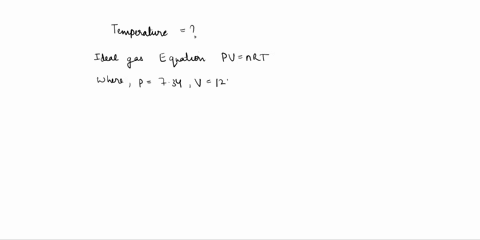 Temperature = ?
Ideal gas Equation PV = nRT
Where, P = 7.34, V = 12.